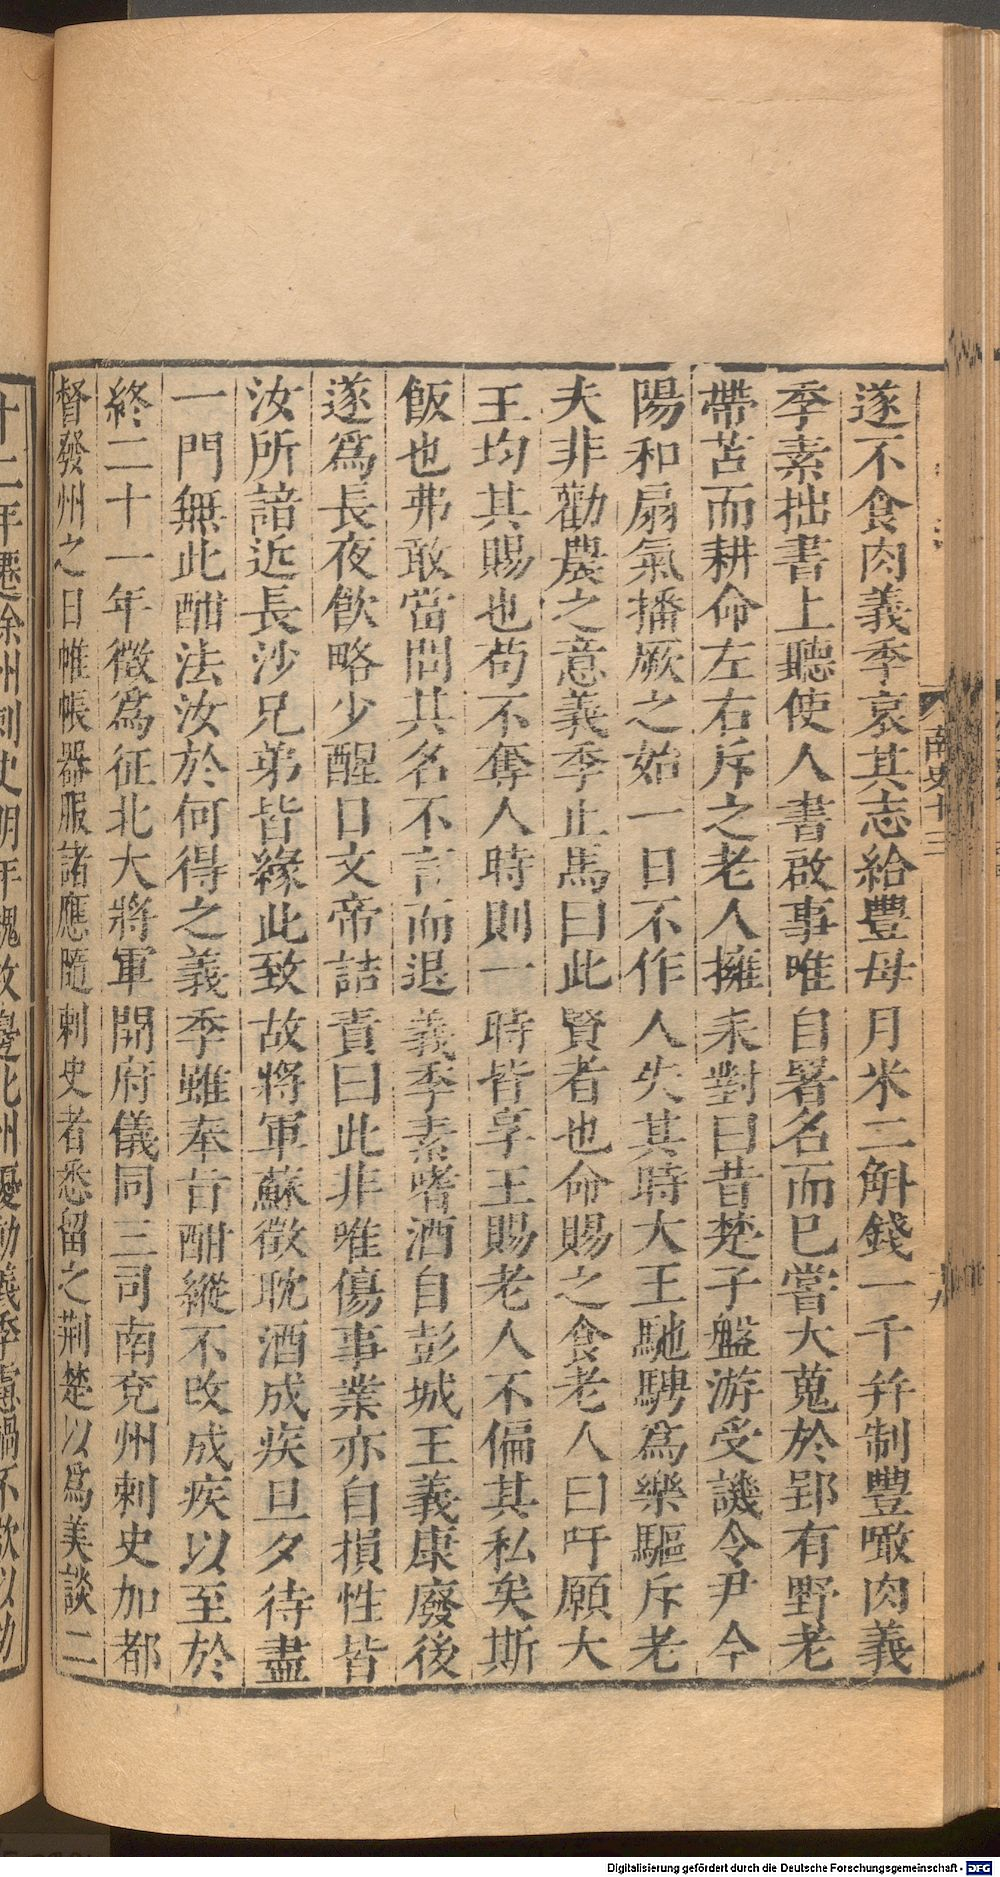 遂不食肉義季哀其志給豊母月米二斛錢一千并制豊噉肉義
季素拙書上聽使人書啟事唯自署名而已嘗大蒐於郢有野老
帶苫而耕命左右斥之老人擁耒對曰昔楚子盤游受譏令尹今
陽和扇氣播厥之始一日不作人失其時大王馳騁爲樂驅斥老
夫非勸農之意義季止馬曰此賢者也命賜之食老人曰吁願大
王均其賜也苟不奪人時則一時皆享王賜老人不偏其私矣斯
飯也弗敢當問其名不言而退義季素嗜酒自彭城王義康廢後
遂爲長夜飲略少醒日文帝詰責曰此非唯傷事業亦自損性皆
汝所諳近長沙兄弟皆緣此致故將軍蘇徵耽酒成疾旦夕待盡
一門無此酣法汝於何得之義季雖奉旨酣縱不改成疾以至於
終二十一年徵爲征北大將軍開府儀同三司南兗州刺史加都
督發州之日帷帳器服諸應隨刺史者悉留之荆楚以爲美談二
十二年遷徐州刺史明年魏攻邊北州擾動義季慮禍不欲以功
南史十三
九
Digitalisierung gefördert durch die Deutsche Forschungsgemeinschaft - DFG